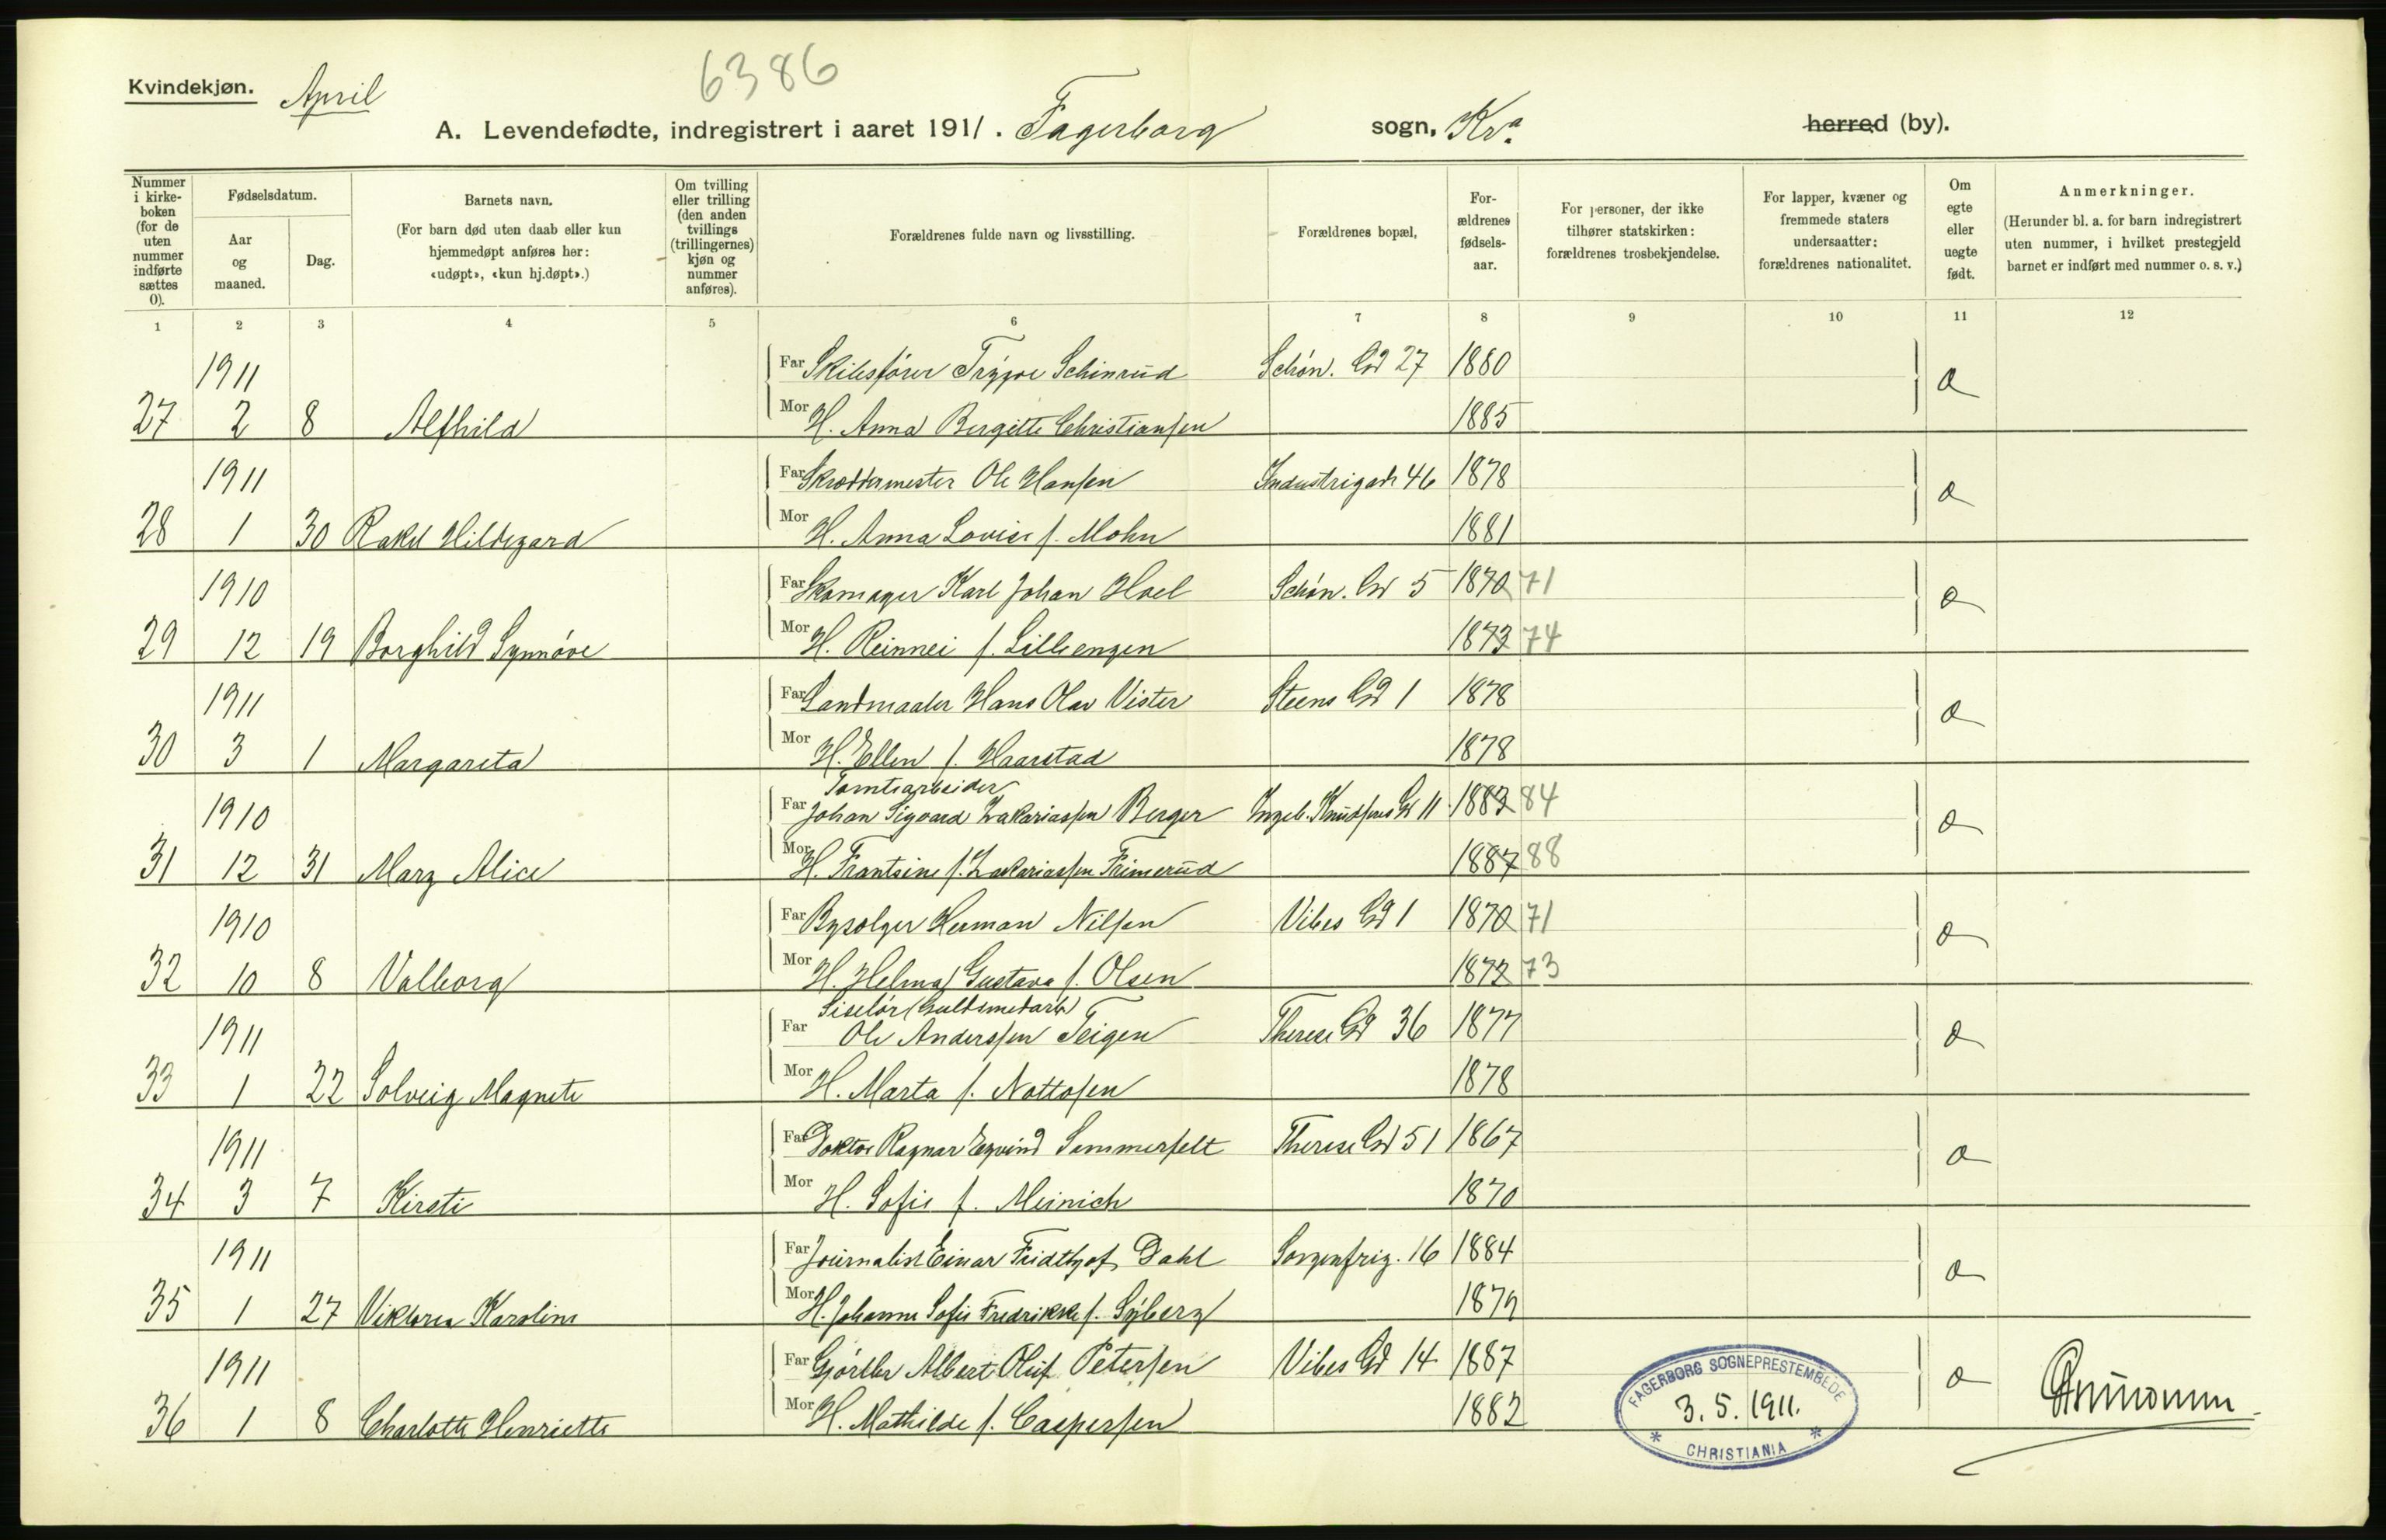 6386
Kvindekjøn. April
A. Levendefødte, indregistrert i aaret 1911. Fagerborg sogn, Kra. herred (by).
Nummer i kirke-boken (for de uten nummer indførte sættes 0).
Fødselsdatum.
Aar og maaned.
Dag.
Barnets navn.
(For barn død uten daab eller kun hjemmedøpt anføres her: «udøpt», «kun hj.døpt».)
Om tvilling eller trilling (den anden tvillings (trillingernes) kjøn og nummer anføres).
Forældrenes fulde navn og livsstilling.
Forældrenes bopæl,
For-ældrenes fødsels-aar.
For personer, der ikke tilhører statskirken: forældrenes trosbekjendelse.
For lapper, kvæner og fremmede staters undersaatter: forældrenes nationalitet.
Om egte eller uegte født.
Anmerkninger.
(Herunder bl. a. for barn indregistrert uten nummer, i hvilket prestegjeld barnet er indført med nummer o. s. v.)
1 2 3 4 5 6 7 8 9 10 11 12
1911 Far Skibsfører Trygve Schinrud Schøn. Gd 27 1880
27 2 8 Alfhild Mor H. Anna Bergitte Christiansen 1885
1911 Far Skræddermester Ole Hansen Industrigade 46 1878
28 1 30 Rakel Hildegard Mor H. Anna Lovise f. Mohn 1881
1910 Far Skomager Karl Johan Hoel Schøn. Gd 5 1870 71
29 12 19 Borghild Synnøve Mor H. Reinnei f. Lilleengen 1873 74
1911 Far Landmaaler Hans Olav Vister Steens Gd 1 1878
30 3 1 Margareta Mor H. Ellen f. Haarstad 1878
Tomtearbeider
1910 Far Johan Sigvard Zakariassen Berger Ingeb. Knudsens Gd 11 1883 84
31 12 31 Mary Alice Mor H. Frantsine f. Zakariassen Frimerud 1887 88
1910 Far Bysolger Herman Nilsen Vibes Gd 1 1870 71
32 10 8 Valborg Mor H. Helma Gustava f. Olsen 1872 73
Siselør (Guldsmedarb)
1911 Far Ole Anderssen Teigen Therese Gd 36 1877
33 1 22 Solveig Magnete Mor H. Marta f. Nottosen 1878
1911 Far Doktor Ragnar Eyvind Sommerfelt Therese Gd 51 1867
34 3 7 Kirsti Mor H. Sofie f. Meinich 1870
1911 Far Journalist Einar Fridthjof Dahl Sorgenfrig. 16 1884
35 1 27 Viktoria Karoline Mor H. Johanne Sofie Fredrikke f. Syberg 1879
1911 Far Gjørtler Albert Oluf Petersen Vibes Gd 14 1887
36 1 8 Charlotte Henriette Mor H. Mathilde f. Caspersen 1882
FAGERBORG SOGNEPRESTEMBEDE
3.5.1911.
* CHRISTIANIA *